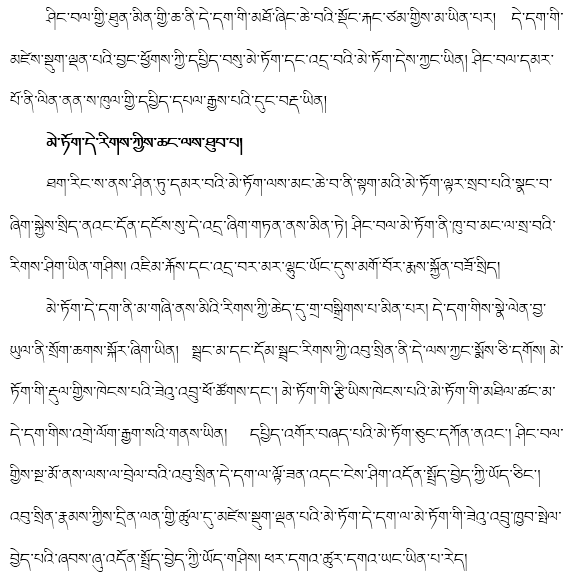 ཤིང་བལ་གྱི་ཐུན་མིན་གྱི་ཆ་ནི་དེ་དག་གི་མཐོ་ཞིང་ཆེ་བའི་སྡོང་རྐང་ཙམ་གྱིས་མ་ཡིན་པར། དེ་དག་གི་
མཛེས་སྡུག་ལྡན་པའི་བྱང་ཕྱོགས་ཀྱི་དཔྱིད་བསུ་མེ་ཏོག་དང་འདྲ་བའི་མེ་ཏོག་དེས་ཀྱང་ཡིན། ཤིང་བལ་དམར་
པོ་ནི་ལིན་ནན་ས་ཁུལ་གྱི་དཔྱིད་དཔལ་རྒྱས་པའི་དུང་བརྡ་ཡིན།
མེ་ཏོག་དེ་རིགས་ཀྱིས་ཆང་ལས་ཐུབ་པ།
ཐག་རིང་ས་ནས་ཤིན་ཏུ་དམར་བའི་མེ་ཏོག་ལས་མང་ཆེ་བ་ནི་སྟག་མའི་མེ་ཏོག་ལྟར་སྲབ་པའི་སྣང་བ་
ཞིག་སྐྱེས་སྲིད་ནའང་དོན་དངོས་སུ་དེ་འདྲ་ཞིག་གཏན་ནས་མིན་ཏེ། ཤིང་བལ་མེ་ཏོག་ནི་ཁུ་བ་མང་ལ་སྲ་བའི་
རིགས་ཤིག་ཡིན་གཤིས། འཇིམ་རྐོས་དང་འདྲ་བར་མར་ལྷུང་ཡོང་དུས་མགོ་བོར་རྨས་སྐྱོན་བཟོ་སྲིད།
མེ་ཏོག་དེ་དག་ནི་མ་གཞི་ནས་མིའི་རིགས་ཀྱི་ཆེད་དུ་གྲ་བསྒྲིགས་པ་མིན་པར། དེ་དག་གིས་སྣེ་ལེན་བྱ་
ཡུལ་ནི་སྲོག་ཆགས་སྐོར་ཞིག་ཡིན། སྦྲང་མ་དང་དོམ་སྦྲང་རིགས་ཀྱི་འབུ་སྲིན་ནི་དེ་ལས་ཀྱང་སྨོས་ཅི་དགོས། མེ་
ཏོག་གི་རྡུལ་གྱིས་ཁེངས་པའི་ཟེའུ་འབྲུ་ཕོ་ཚོགས་དང་། མེ་ཏོག་གི་རྩི་ཡིས་ཁེངས་པའི་མེ་ཏོག་གི་མཐིལ་ཚང་མ་
དེ་དག་གིས་འགྲེ་ལོག་རྒྱག་སའི་གནས་ཡིན། དཔྱིད་འགོར་བཞད་པའི་མེ་ཏོག་ཅུང་དཀོན་ནའང་། ཤིང་བལ་
གྱིས་སྔ་མོ་ནས་ལས་ལ་བྲེལ་བའི་འབུ་སྲིན་དེ་དག་ལ་ལྟོ་ཟན་འདང་ངེས་ཤིག་འདོན་སྤྲོད་བྱེད་ཀྱི་ཡོད་ཅིང་།
འབུ་སྲིན་རྣམས་ཀྱིས་དྲིན་ལན་གྱི་ཚུལ་དུ་མཛེས་སྡུག་ལྡན་པའི་མེ་ཏོག་དེ་དག་ལ་མེ་ཏོག་གི་ཟེའུ་འབྲུ་ཁྱབ་སྤེལ་
བྱེད་པའི་ཞབས་ཞུ་འདོན་སྤྲོད་བྱེད་ཀྱི་ཡོད་གཤིས། ཕར་དགའ་ཚུར་དགའ་ཡང་ཡིན་པ་རེད།